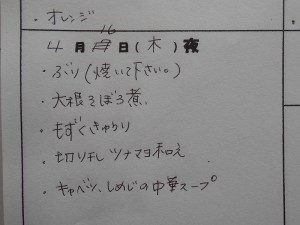 ・オレンジ
4月16日(木)夜
・ぶり(焼いて下さい。)
・大根そぼろ煮
・もずくきゅうり
・切り干しツナマヨ和え
・キャベツ、しめじの中華スープ